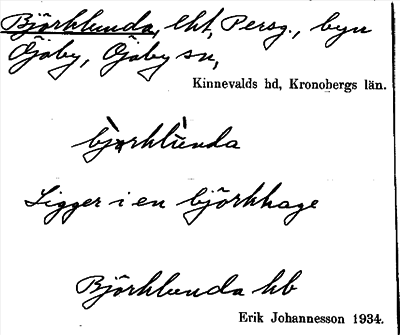 Björklunda, lht, Persg., byn
Öjaby, Öjaby sn,
Kinnevalds hd, Kronobergs län.
bjö̀rklúnda
Ligger i en björkhage
Björklunda hb
Erik Johannesson 1934.